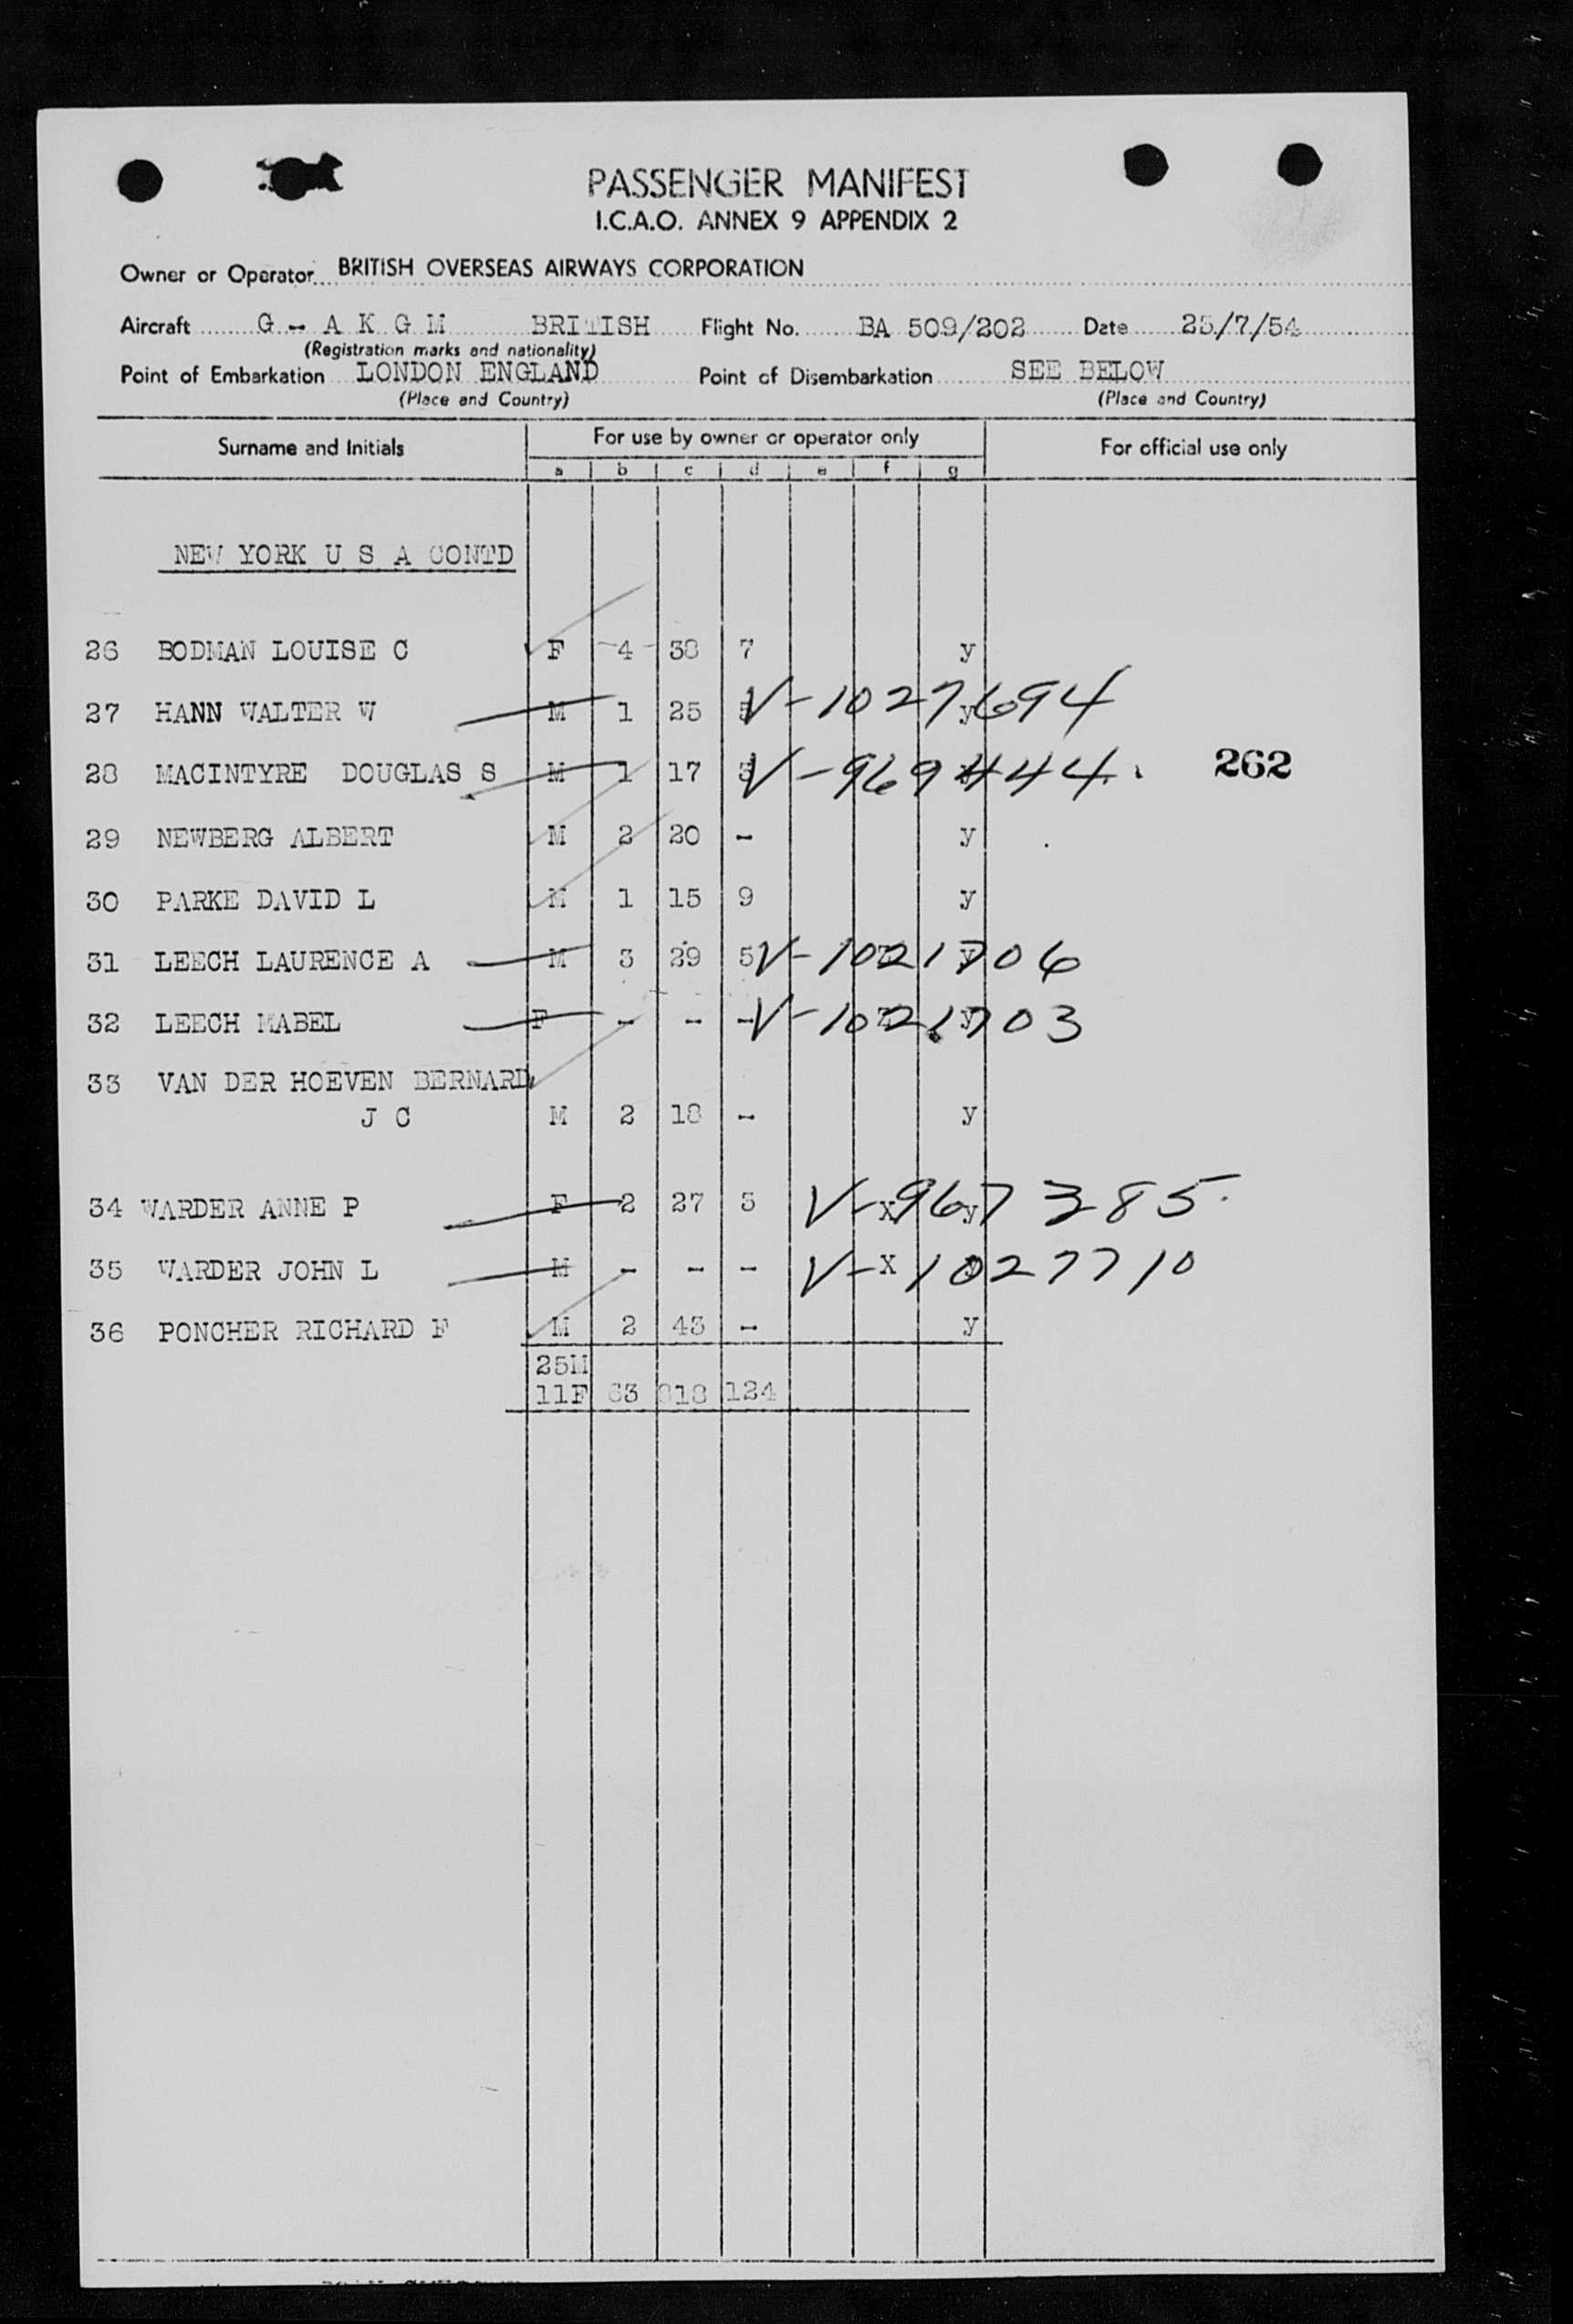 PASSENGER MANIFEST
I.C.A.O. ANNEX 9 APPENDIX 2
Owner or Operator BRITISH OVERSEAS AIRWAYS CORPORATION
Aircraft G - A K G M BRITISH Flight No. BA 509/202 Date 25/7/54
(Registration marks and nationality)
Point of Embarkation LONDON ENGLAND Point of Disembarkation SEE BELOW
(Place and Country) (Place and Country)
Surname and Initials For use by owner or operator only For official use only
a b c d e f g
NEW YORK U S A CONTD
26 BODMAN LOUISE C F 4 38 7 y
27 HANN WALTER W M 1 25 5 V-1027694 y
28 MACINTYRE DOUGLAS S M 1 17 V-969444. 262
29 NEWBERG ALBERT M 2 20 - y
30 PARKE DAVID L M 1 15 9 y
31 LEECH LAURENCE A M 3 29 5 V-1021706
32 LEECH MABEL F - - - V-1021703 y
33 VAN DER HOEVEN BERNARD
J C M 2 18 - y
34 WARDER ANNE P F 2 27 3 V-967385. X y
35 WARDER JOHN L M - - - V-1027710 X
36 PONCHER RICHARD F M 2 43 - y
25M
11F 63 818 124